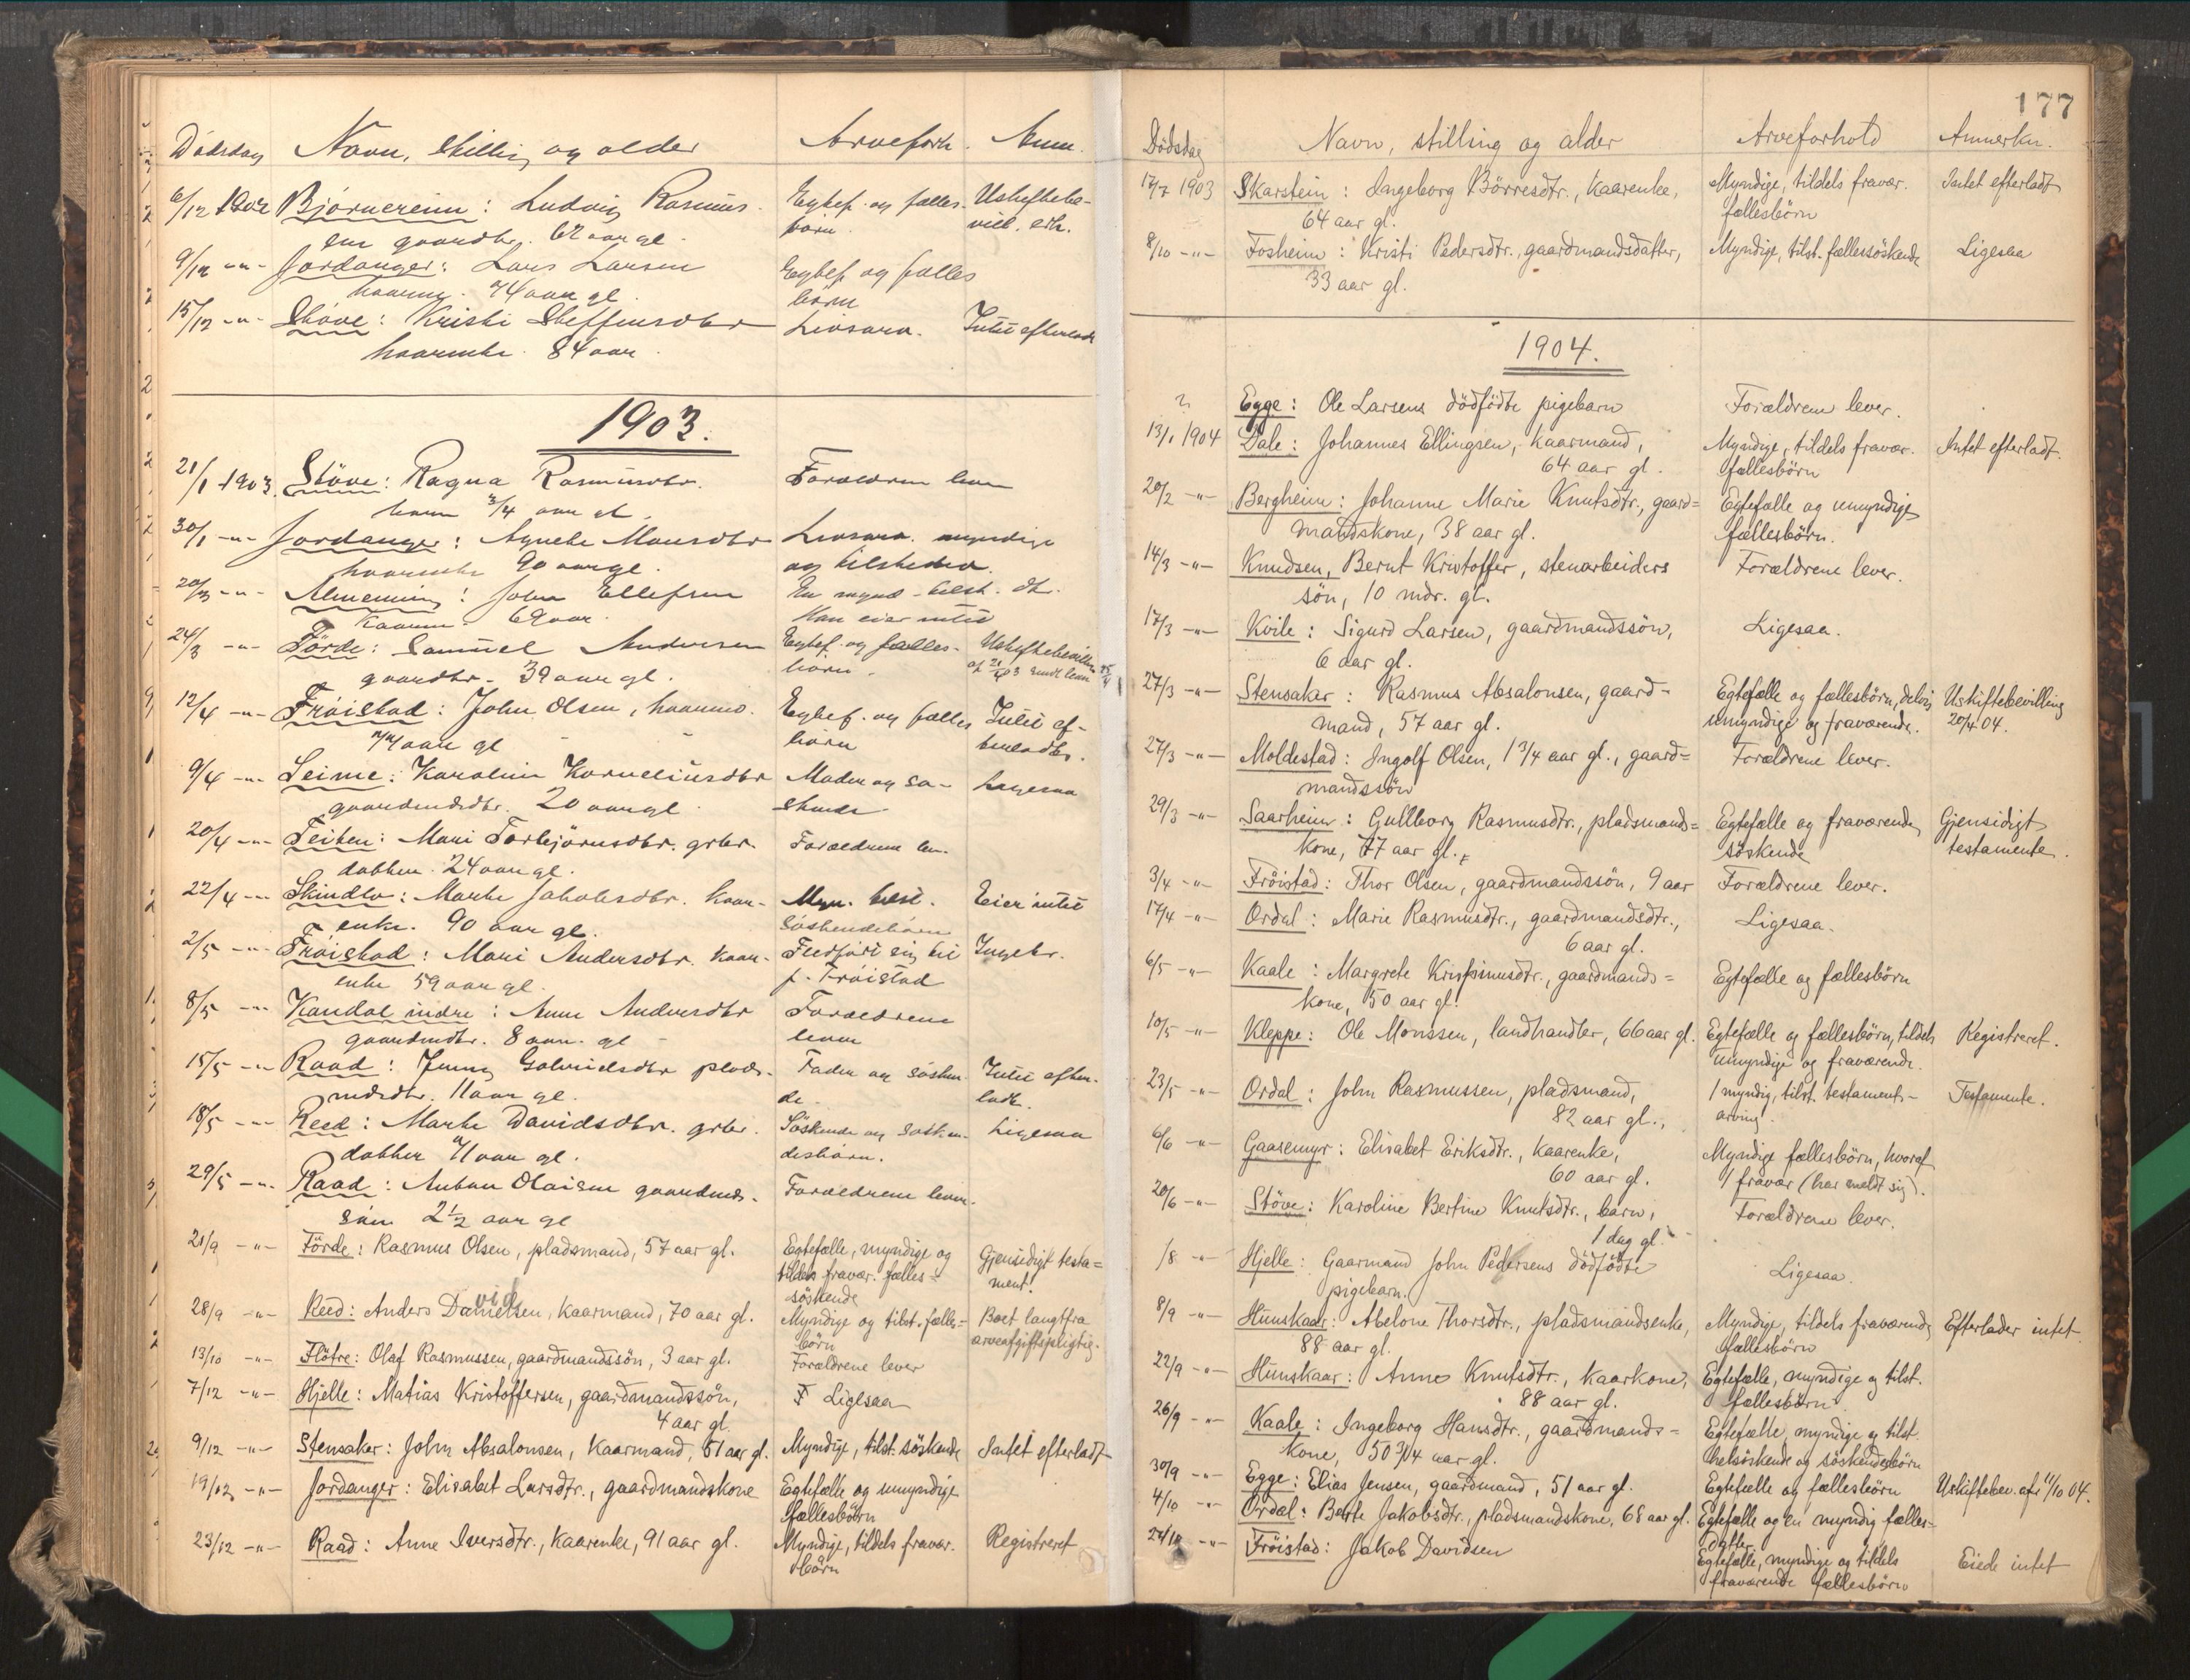 Dödsdag Navn, stilling og alder Arveforh. Anm.
6/12 1902 Björnereim: Ludvig Rasmus- Egtef. og fælles- Uskiftebe-
sen gaardbr. 62 aar gl. börn. vill. erh.
9/12 -"- Jordanger: Lars Larsen Egtef. og fælles
kaarm. 74 aar gl. börn
15/12 -"- Støve: Kristi Steffensdtr Livsarv. Intet efterladt
kaarenke. 84 aar.
1903.
21/1 1903. Støve: Ragna Rasmusdtr. Forældrene lever
barn 3/4 aar gl.
30/1 -"- Jordanger: Agnete Monsdtr Livsarv. myndige
kaarenke 90 aar gl. og tilstede
20/3 -"- Almenning: John Ellefsen En mynd. tilst. dtr.
Kaarm. 69 aar. Han eier intet
24/3 -"- Förde: Samuel Andersen Egtef. og fælles- Uskiftebevilling
gaardbr. 39 aar gl. börn.
12/4 -"- Fröistad: John Olsen, kaarmd. Egtef. og fælles Intet ef-
74 aar gl börn terladt.
9/4 -"- Leime: Karolin Korneliusdtr Moder og sø- Ligesaa
gaardmdsdtr. 20 aar gl. skende
20/4 -"- Teiten: Mari Torbjörnsdtr. grbr. Forældrene lev.
datter. 24 aar gl.
22/4 -"- Skindlo: Marte Jakobsdtr. kaar- Myn. tilst. Eier intet
enke. 90 aar gl. Söskendebörn
2/5 -"- Fröistad: Mari Andersdtr. kaar- Fledfört sig til Ingebr.
enke 59 aar gl. p. Fröistad
8/5 -"- Kandal indre: Anne Andersdtr Forældrene
gaardmdtr. 8 aar. gl lever
15/5 -"- Raad: Jenny Gabrielsdtr plads- Fader og søsken- Intet efter-
mdsdtr. 11 aar gl. de. ladt.
18/5 -"- Reed: Marte Davidsdtr. grbr. Söskende og søsken- Ligesaa
datter 71 aar gl. desbörn.
29/5 -"- Raad: Anton Olaisen gaardmds- Forældrene lever.
sön 2 1/2 aar gl
21/9 -"- Förde: Rasmus Olsen, pladsmand, 57 aar gl. Egtefælle, myndige og Gjensidigt testa=
tildels fravær. fælles= ment.
söskende
28/9 -"- Reed: Anders Davidsen, kaarmand, 70 aar gl. Myndige og tilst. fælles= Boet langtfra
börn arveafgiftspligtig.
13/10 -"- Flötre: Olaf Rasmussen, gaardmandssön, 3 aar gl. Forældrene lever
7/12 -"- Hjelle: Matias Kristoffersen, gaardmandssön, Ligesaa
4 aar gl.
9/12 -"- Stensaker: John Absalonsen, kaarmand, 51 aar gl. Myndige, tilst. söskende Intet efterladt
19/12 -"- Jordanger: Elisabet Larsdtr., gaardmandskone Egtefælle og umyndige
fællesbörn
23/12 -"- Raad: Anne Iversdtr., kaarenke, 91 aar gl. Myndige, tildels fravær. Registreret
börn
177
Dödsdag Navn, stilling og alder Arveforhold Anmerkn.
17/7 1903 Skarstein: Ingeborg Börresdtr., kaarenke, Myndige, tildels fravær. Intet efterladt
64 aar gl. fællesbörn
8/10 -"- Fosheim: Kristi Pedersdtr., gaardmandsdatter, Myndige, tilst. fællessöskende Ligesaa
33 aar gl.
1904.
? Egge: Ole Larsens dödfödte pigebarn Forældrene lever.
13/1 1904 Dale: Johannes Ellingsen, kaarmand, Myndige, tildels fravær. Intet efterladt.
64 aar gl. fællesbörn
20/2 -"- Bergheim: Johanne Marie Knutsdtr., gaard= Egtefælle og umyndige
mandskone, 38 aar gl. fællesbörn.
14/3 -"- Knudsen, Bernt Kristoffer, stenarbeiders Forældrene lever.
sön, 10 mdr. gl.
17/3 -"- Kvile: Sigurd Larsen, gaardmandssön, Ligesaa.
6 aar gl.
27/3 -"- Stensaker: Rasmus Absalonsen, gaard- Egtefælle og fællesbörn, delvis Uskiftebevilling
mand, 57 aar gl. umyndige og fraværende. 20/4 04.
27/3 -"- Moldestad: Ingolf Olsen, 1 3/4 aar gl., gaard= Forældrene lever.
mandssön
29/3 -"- Saarheim: Gullborg Rasmusdtr., pladsmands= Egtefælle og fraværende Gjensidigt
kone, 77 aar gl. söskende testamente.
3/4 -"- Fröistad: Thor Olsen, gaardmandssön, 9 aar Forældrene lever.
17/4 -"- Ordal: Marie Rasmusdtr., gaardmandsdtr., Ligesaa.
6 aar gl.
6/5 -"- Kaale: Margrete Krispinusdtr., gaardmands= Egtefælle og fællesbörn
kone, 50 aar gl.
10/5 -"- Kleppe: Ole Monssen, landhandler, 66 aar gl. Egtefælle og fællesbörn, tildels Registreret.
umyndige og fraværende.
23/5 -"- Ordal: John Rasmussen, pladsmand, 1 myndig, tilst. testaments- Testamente.
82 aar gl., arving.
6/6 -"- Gaasemyr: Elisabet Eriksdtr., kaarenke, Myndige fællesbörn, hvoraf
60 aar gl. 1 fravær (har meldt sig).
20/6 -"- Støve: Karoline Bertine Knutsdtr., barn, Forældrene lever.
1 dag gl.
/8 -"- Hjelle: Gaarmand John Pedersens dödfödte Ligesaa.
pigebarn.
8/9 -"- Hunskaar: Abelone Thorsdtr., pladsmandsenke, Myndige, tildels fraværende Efterlader intet.
88 aar gl. fællesbörn
22/9 -"- Hunskaar: Anne Knutsdtr., kaarkone, Egtefælle, myndige og tilst.
88 aar gl. fællesbörn.
26/9 -"- Kaale: Ingeborg Hansdtr., gaardmands= Egtefælle, myndige og tilst.
kone, 50 3/4 aar gl. helsöskende og söskendesbörn
30/9 -"- Egge: Elias Jensen, gaardmand, 51 aar gl. Egtefælle og fællesbörn Uskiftebev. af 11/10 04.
4/10 -"- Ordal: Berte Jakobsdtr., pladsmandskone, 68 aar gl. Egtefælle og en myndig fælles=
datter
24/10 -"- Fröistad: Jakob Davidsen Egtefælle, myndige og tildels Eiede intet
fraværende fællesbörn